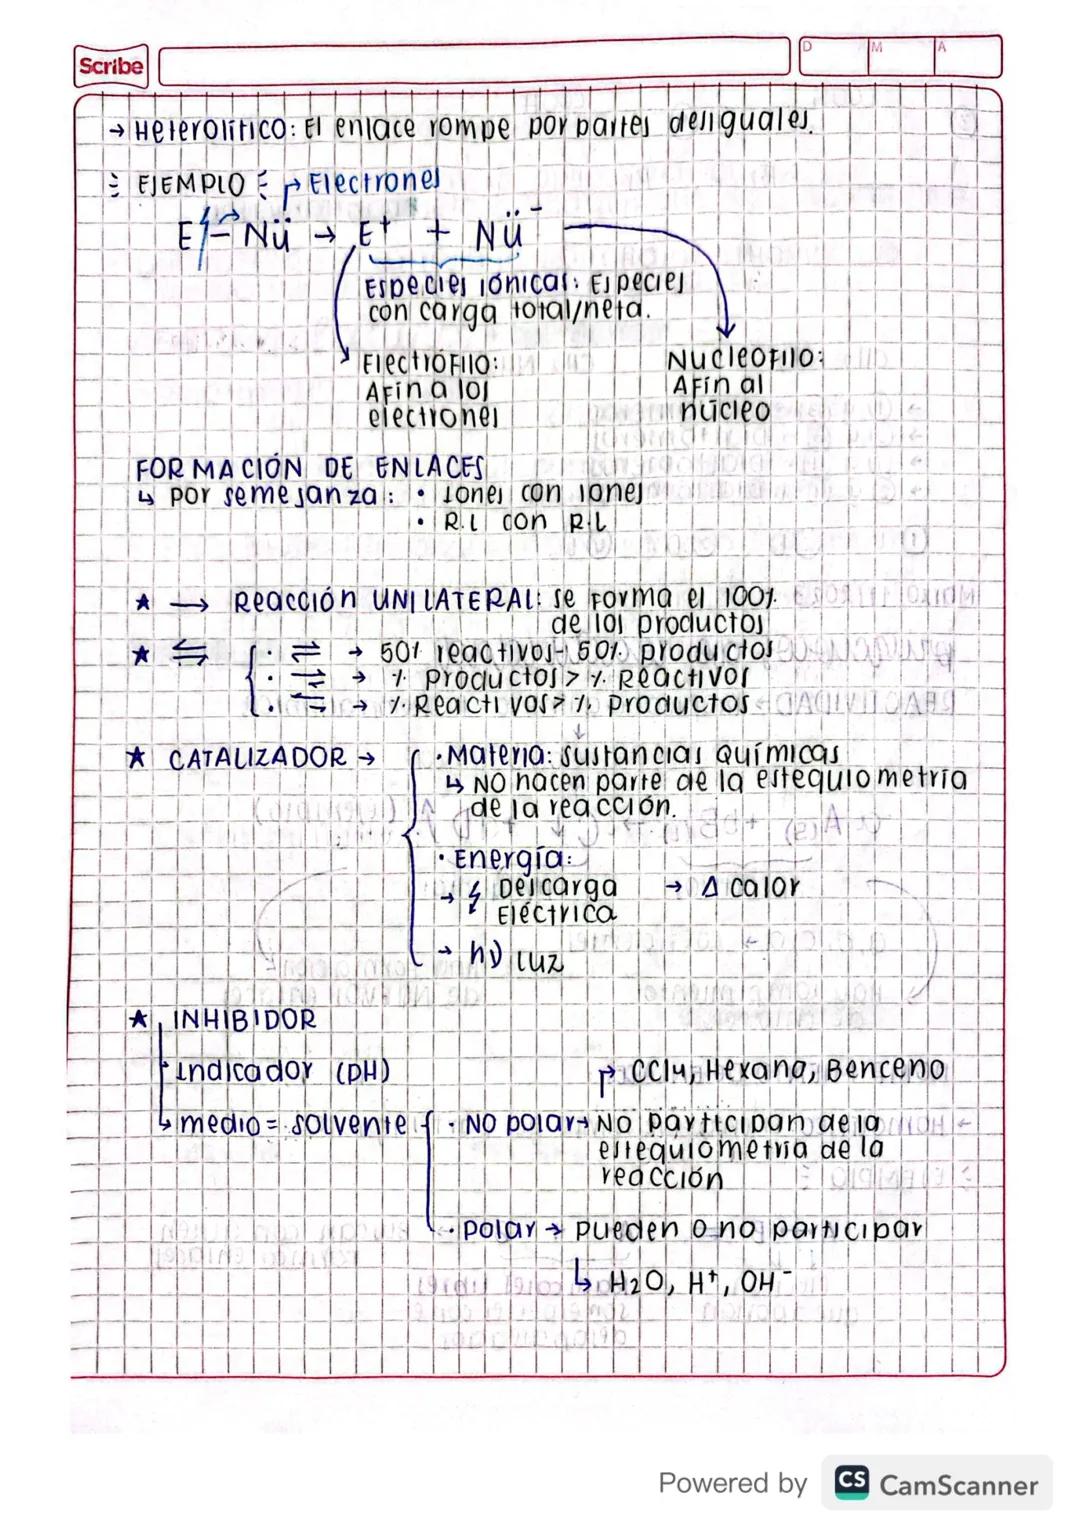 Scribe
D M A
→ Heterolítico: El enlace rompe por partes desiguales.
EJEMPLO ↱ Electrones
E – Nü → E⁺ + Nü⁻
Especies iónicas: Especies
con carga total/neta.
Electrófilo: Nucleófilo:
Afín a los Afín al
electrones núcleo
FORMACIÓN DE ENLACES
↳ por semejanza: • Iones con iones
• R.L con R.L
★ → Reacción UNILATERAL: se forma el 100%
de los productos
★ ⇆ { · ⇌ → 50% reactivos - 50% productos
· ⇌ → % productos > % Reactivos
· ⇌ → % Reactivos > % productos
★ CATALIZADOR → { · Materia: sustancias químicas
↳ NO hacen parte de la estequiometría
de la reacción.
· Energía:
→ Descarga → Δ calor
Eléctrica
→ hν luz
★ INHIBIDOR
Indicador (pH) ↱ CCl4, Hexano, Benceno
↳ medio = solvente { · NO polar → NO participan de la
estequiometría de la
reacción
· polar → pueden o no participar
↳ H₂O, H⁺, OH⁻
Powered by CS CamScanner